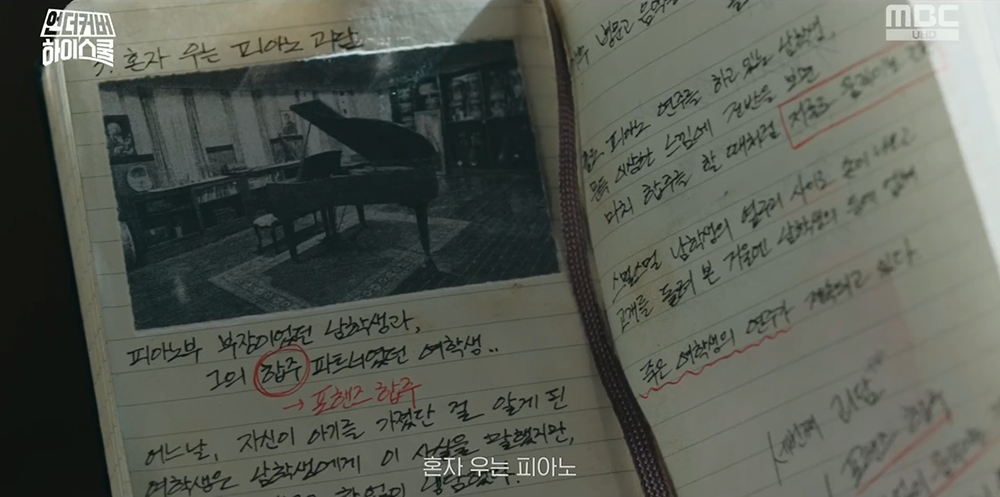 언더커버
하이스쿨
MBC
UHD
혼자 우는 피아노 괴담
피아노부 부장이었던 남학생과,
그의 합주 파트너였던 여학생..
→ 포핸즈 합주
어느날, 자신이 아기를 가졌단 걸 알게 된
여학생은 남학생에게 이 사실을 말했지만,
피아노 연주를 하고 있는 남학생.
문득 이상한 느낌에 건반을 보면
마치 합주를 할 때처럼 저절로
스멀스멀 남학생의 옆구리 사이로 손이 나오고
고개를 돌려 본 거울엔 남학생의 등에 업혀
죽은 여학생의 연주가 계속되고 있다.
세번째 괴담
혼자 우는 피아노